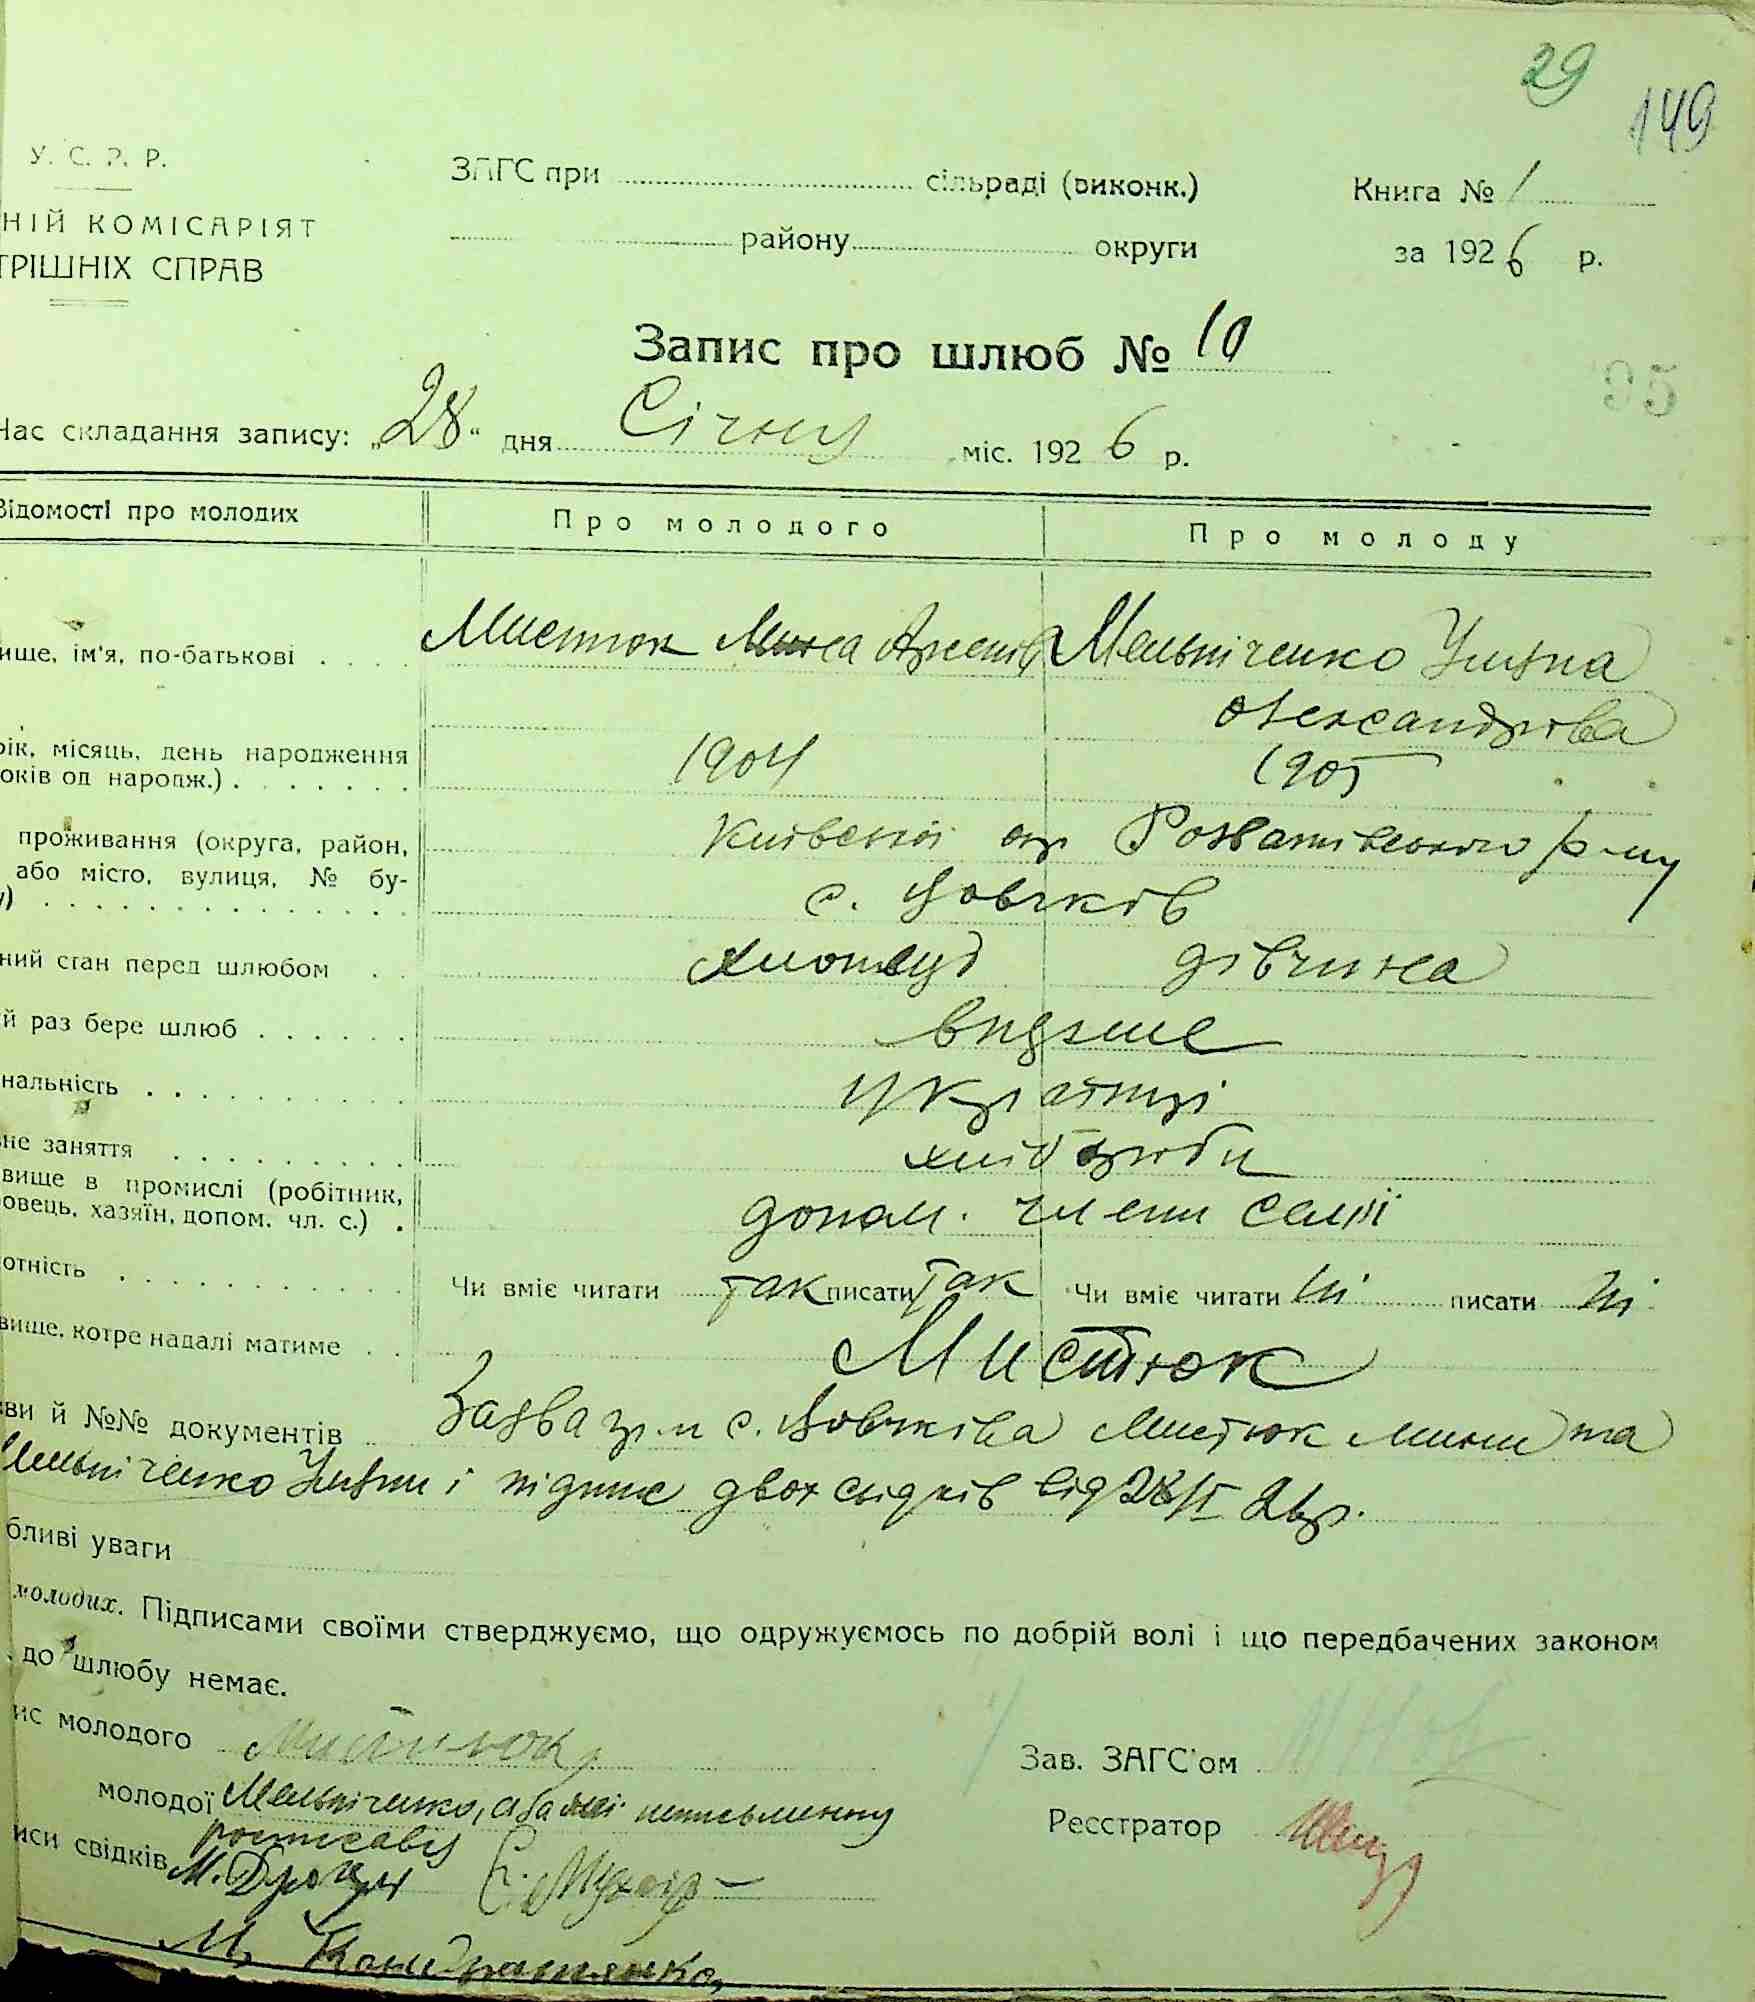 29
149
У. С. Р. Р.
ЗАГС при сільраді (виконк.) Книга № 1
НІЙ КОМІСАРІЯТ
району округи за 1926 р.
ТРІШНІХ СПРАВ
Запис про шлюб № 10
95
Час складання запису: „28“ дня Січня міс. 1926 р.
Відомості про молодих Про молодого Про молоду
ище, ім'я, по-батькові Мистюк Мина Мельніченко Уляна
Олександрівна
рік, місяць, день народження 1904 1905
оків од народж.)
проживання (округа, район, Київської окр Розваживського р-ну
або місто, вулиця, № бу- с. Вовчків
у)
ний стан перед шлюбом хлопець дівчина
й раз бере шлюб вперше
нальність українці
не заняття хлібороби
вище в промислі (робітник, допом. члени семії
овець, хазяїн, допом. чл. с.)
отність Чи вміє читати так писати так Чи вміє читати ні писати ні
вище, котре надалі матиме Мистюк
ви й №№ документів Заява гр-н с. Вовчківа Мистюк Мини та
Мельніченко Уляни і підпис двох свідків від 28/I 26р.
бливі уваги
молодих. Підписами своїми стверджуємо, що одружуємось по добрій волі і що передбачених законом
до шлюбу немає.
ис молодого Мистюк
Зав. ЗАГС'ом
молодої Мельніченко, а за неї неписьменну
Реєстратор
росписавсь
иси свідків М.
М. Кондратенко